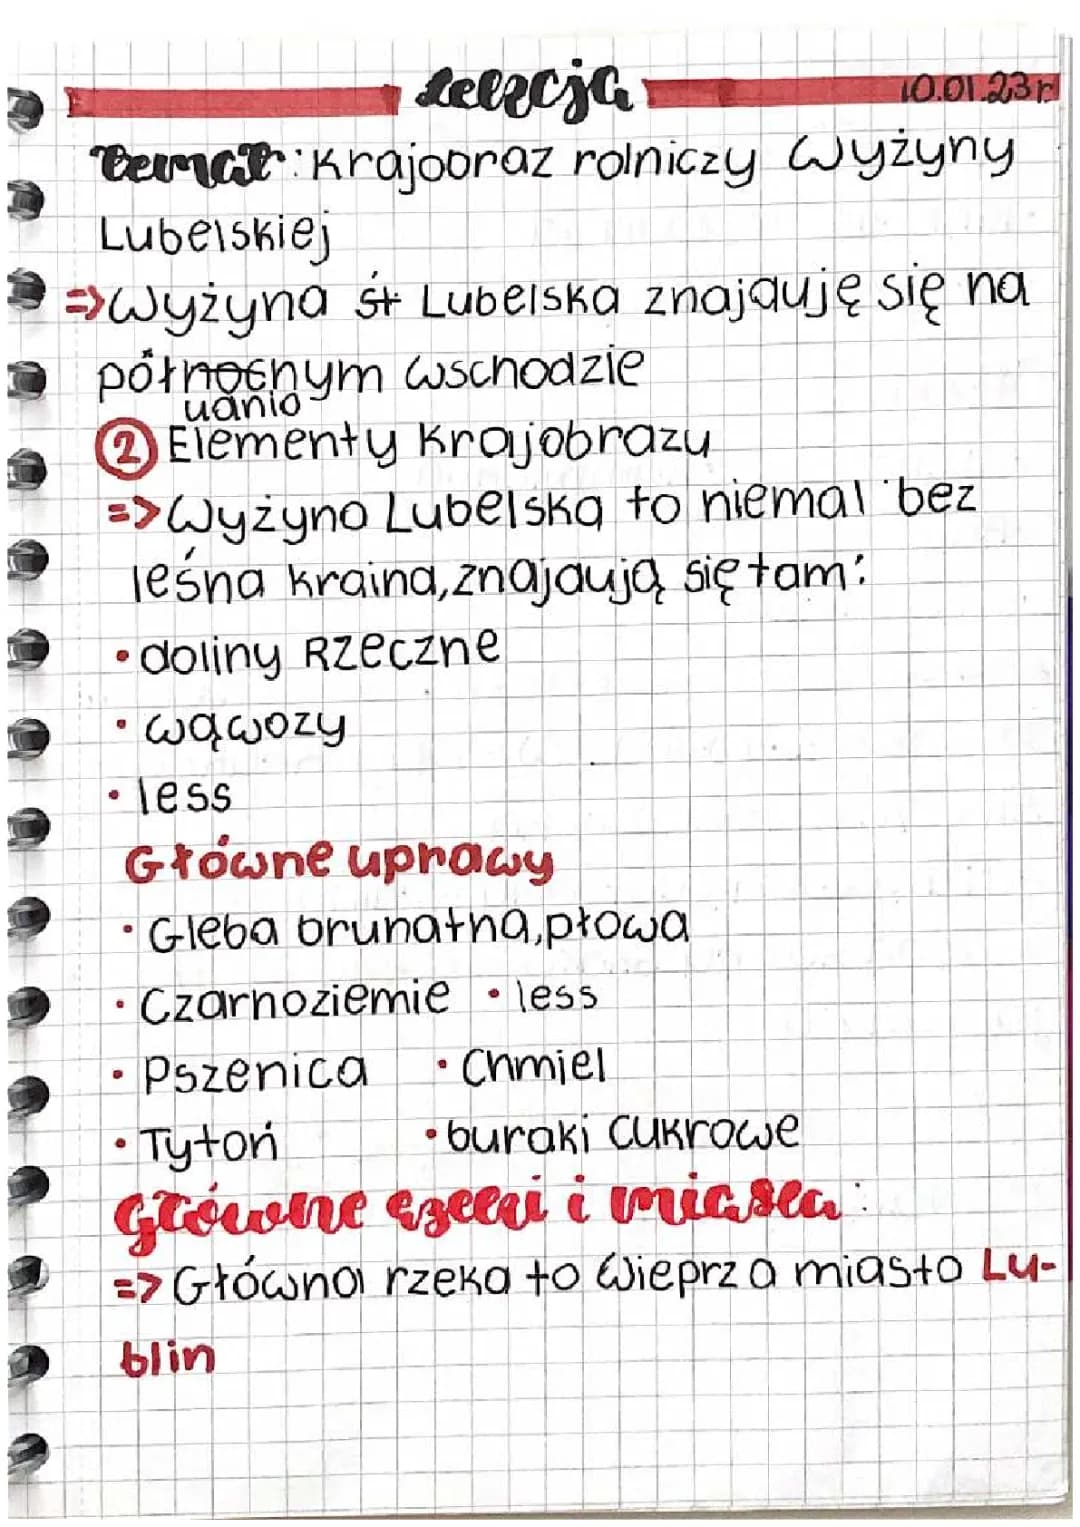 Lekcja 10.01.23r
Temat: Krajobraz rolniczy Wyżyny
Lubelskiej
=> Wyżyna śr Lubelska znajduję się na
północnym wschodzie
udnio
2 Elementy Krajobrazu
=> Wyżyna Lubelska to niemal bez
leśna kraina, znajdują się tam:
• doliny Rzeczne
• wąwozy
• less
Główne uprawy
• Gleba brunatna, płowa
• Czarnoziemie • less
• Pszenica • Chmiel
• Tytoń • buraki cukrowe
Główne rzeki i miasta:
=> Główna rzeka to Wieprz a miasto Lu-
blin